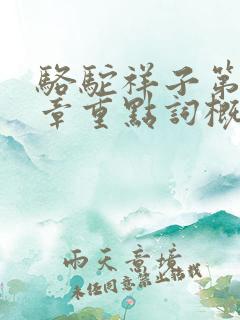 駱駝祥子第
章重點詞概
雨天意境
未经同意禁止转载